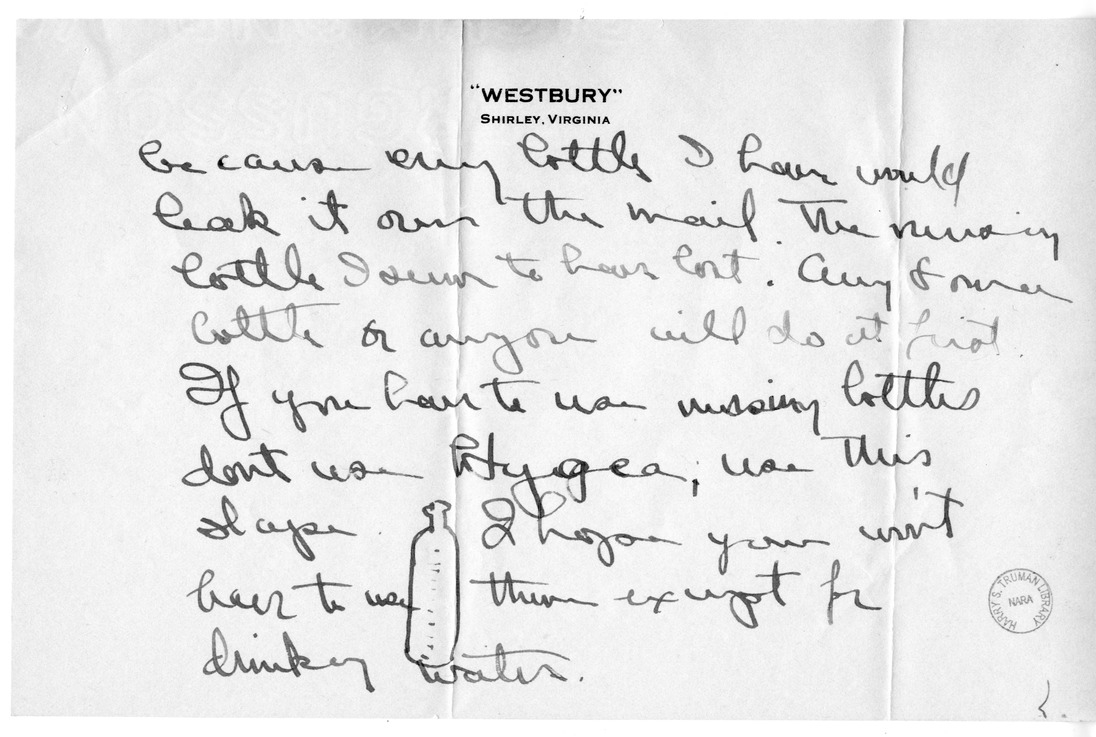 "WESTBURY"
SHIRLEY, VIRGINIA
because any bottle I have would
leak it over the mail. The nursing
bottle I seem to have lost. Any
bottle or anyone will do at first.
If you have to use nursing bottles
dont use Hygea; use this
shape I hope you won't
have to use them except for
drinking water.
HARRY S. TRUMAN LIBRARY
NARA